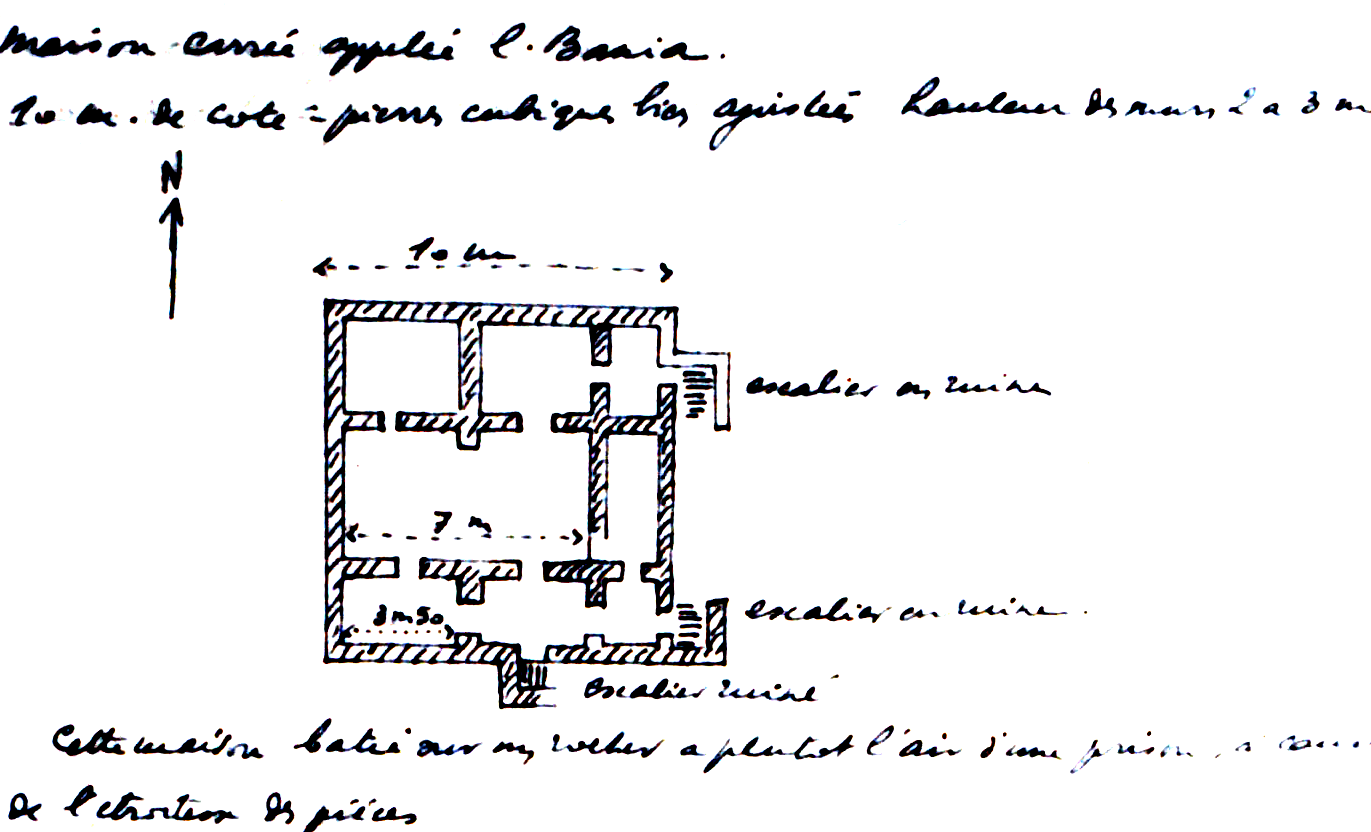 maison carrée appelée l. Bania.
10 m. de cote = pierres cubiques bien ajustées hauteur des murs 2 a 3 m
N
10 m
escalier en ruine
7 m
3 m 50
escalier en ruine.
escalier ruiné
Cette maison batie sur un rocher a plutot l'air d'une prison, a cause
de l'etroitesse des pièces